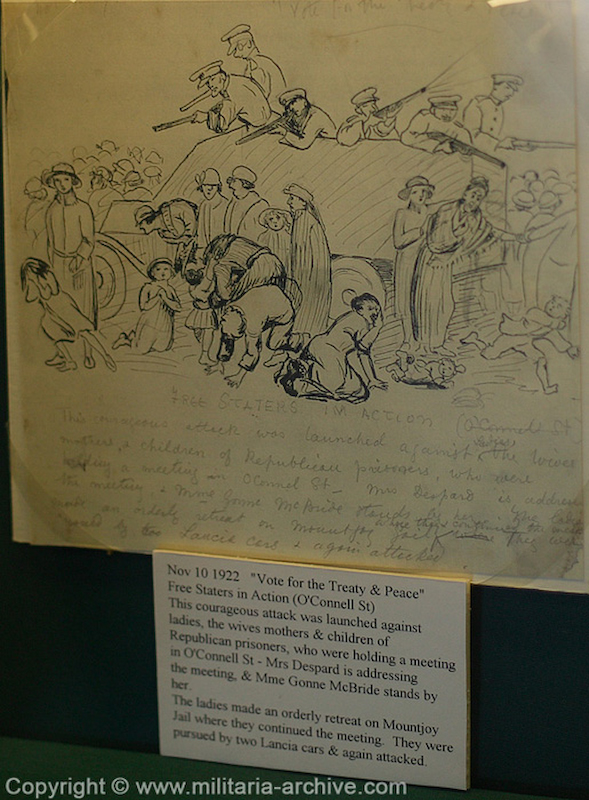 "Vote for the Treaty &
FREE STATERS IN ACTION (O'Connell St)
This courageous attack was launched against the wives
mothers & children of Republican prisoners, who were
holding a meeting in O'Connel St - Mrs Despard is address
the meeting, & Mme Gonne McBride stands by her. The ladies
made an orderly retreat on Mountjoy Jail where they continued the meeting They were
pursued by two Lancia cars & again attacked
Nov 10 1922 "Vote for the Treaty & Peace"
Free Staters in Action (O'Connell St)
This courageous attack was launched against
ladies, the wives mothers & children of
Republican prisoners, who were holding a meeting
in O'Connell St - Mrs Despard is addressing
the meeting, & Mme Gonne McBride stands by
her.
The ladies made an orderly retreat on Mountjoy
Jail where they continued the meeting. They were
pursued by two Lancia cars & again attacked.
Copyright © www.militaria-archive.com